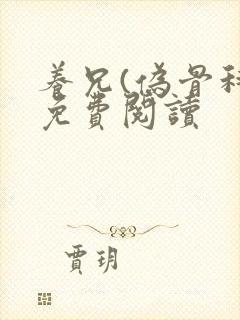 養兄(偽骨科
免費閱讀
賈玥